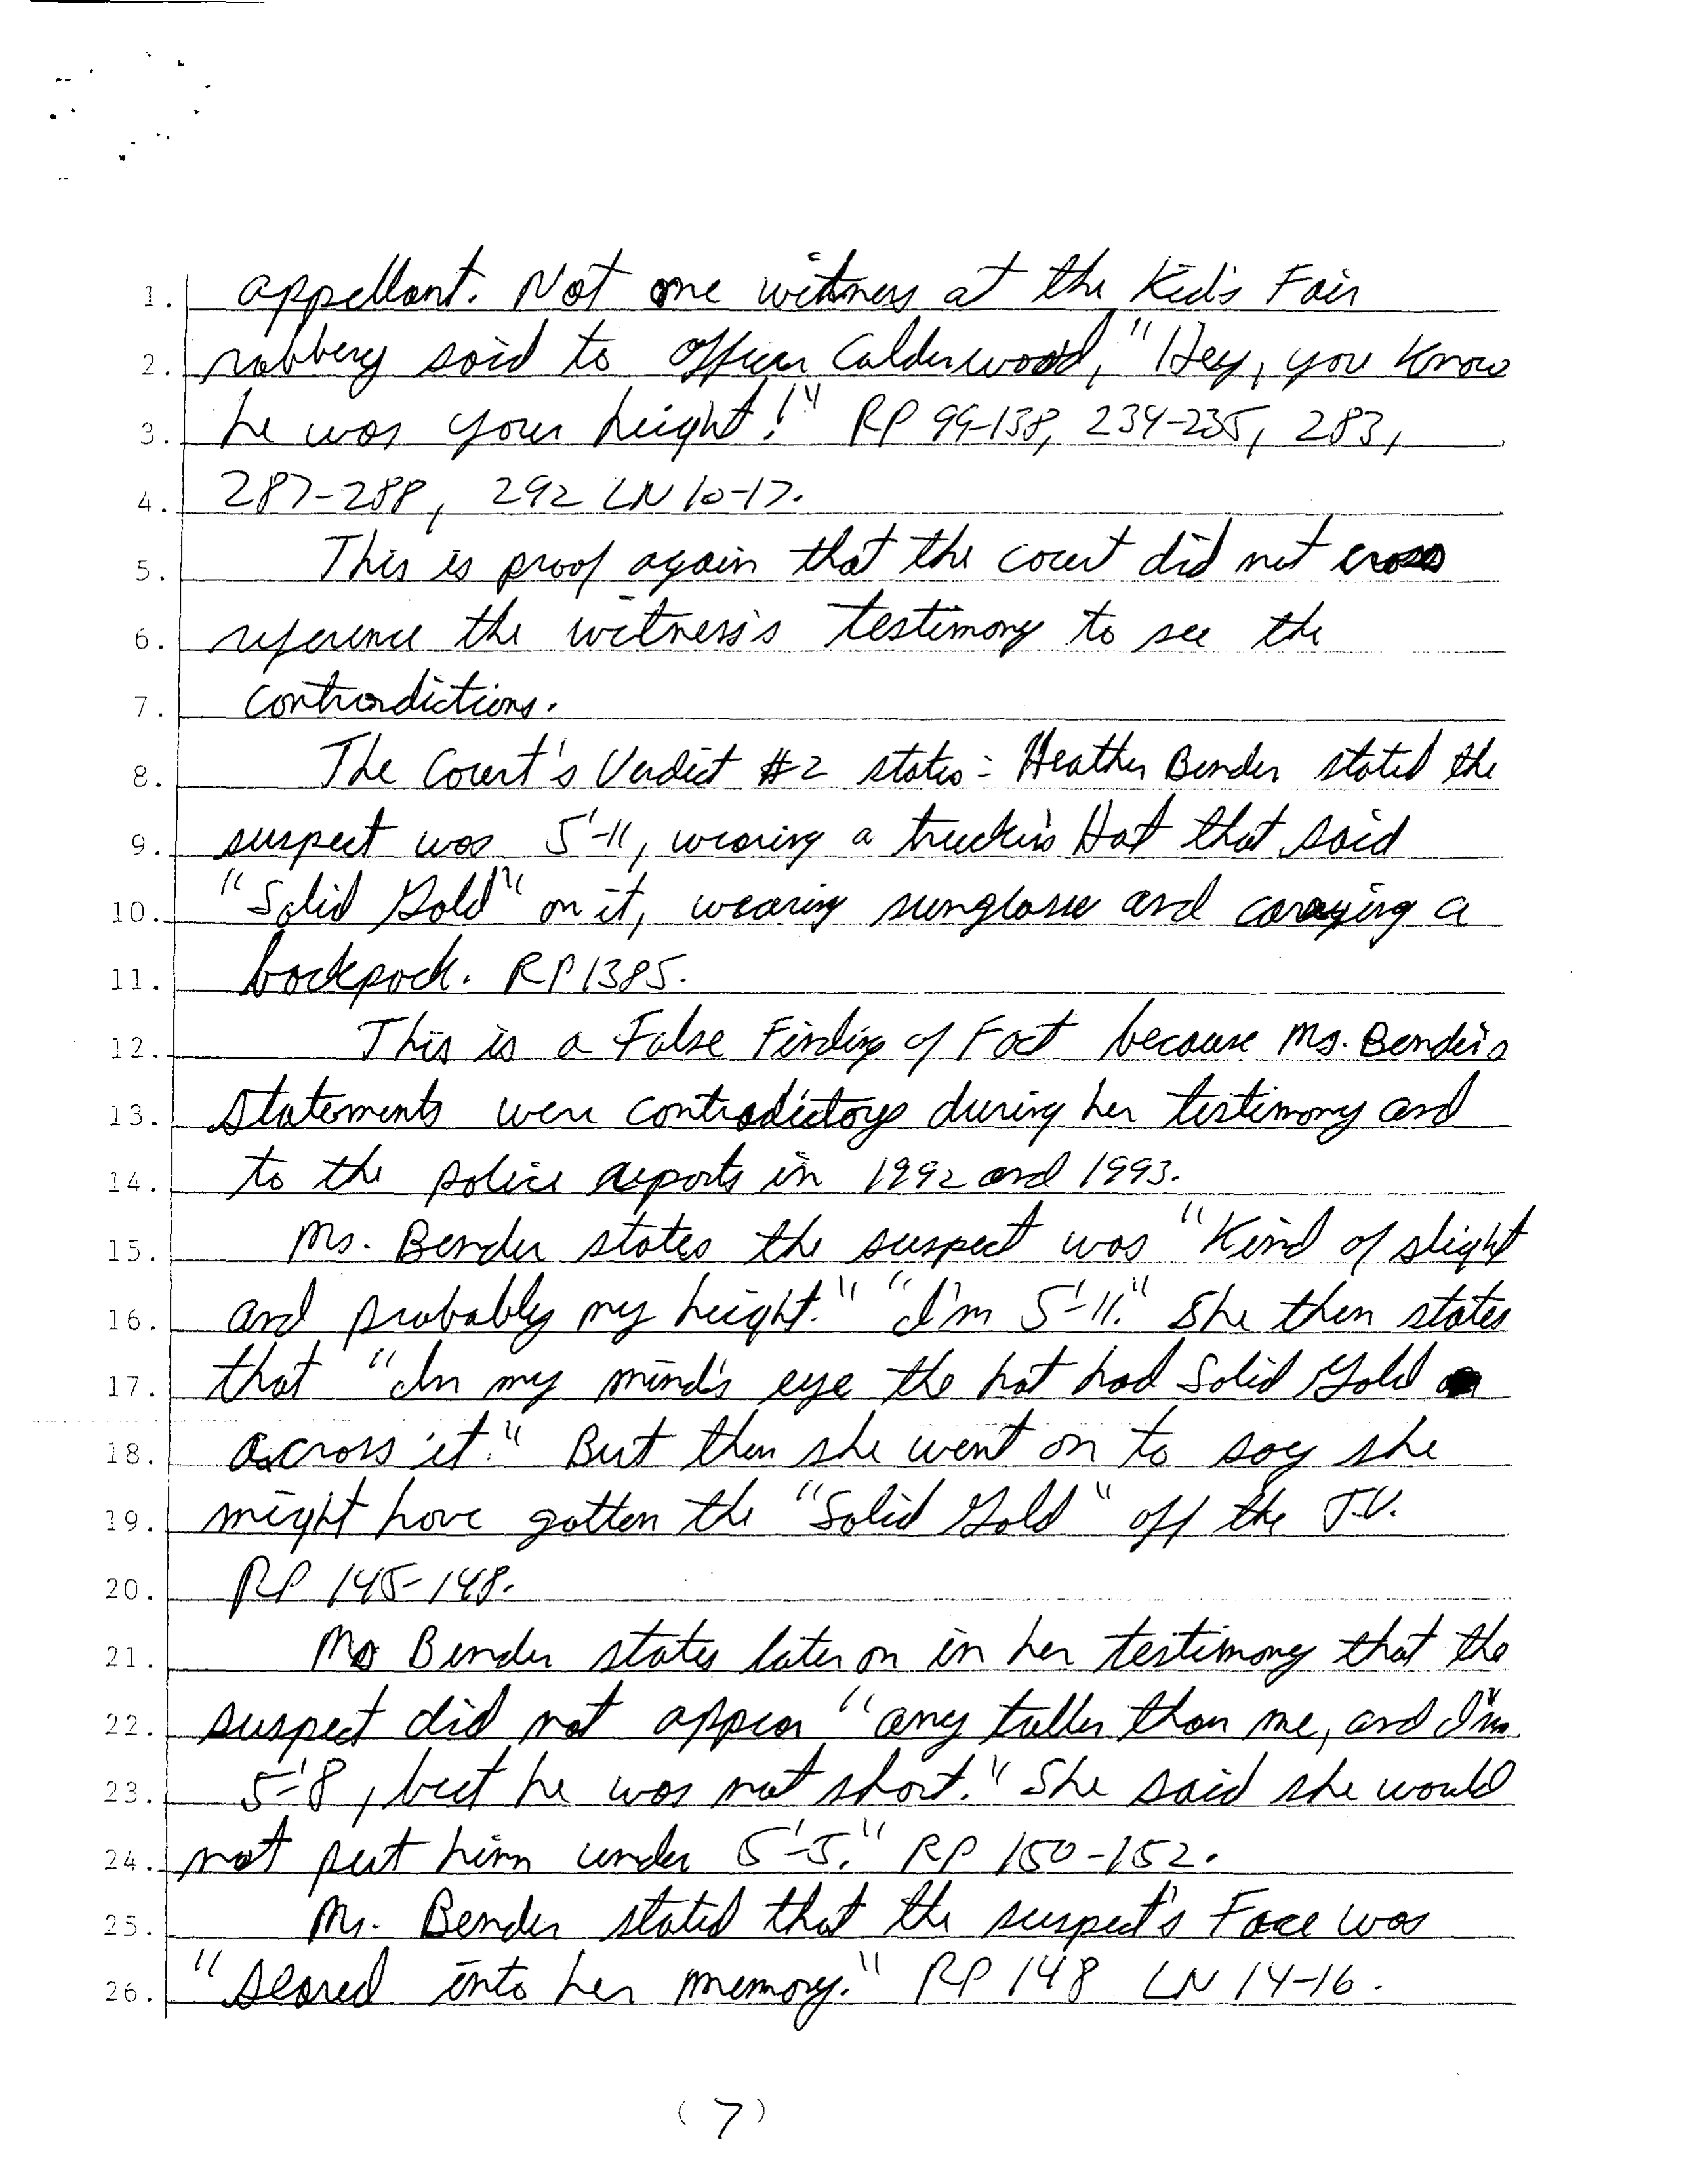 1. appellant. Not one witness at the Kid's Fair
2. robbery said to officer Calderwood, "Hey, you know
3. he was your height!" RP 99-138, 234-235, 283,
4. 287-288, 292 LN 10-17.
5. This is proof again that the court did not cross
6. reference the witness's testimony to see the
7. contradictions.
8. The Court's Verdict #2 states: Heather Bender stated the
9. suspect was 5'-11, wearing a trucker's Hat that said
10. "Solid Gold" on it, wearing sunglasse and carrying a
11. backpack. RP 1385.
12. This is a False Finding of Fact because Ms. Bender's
13. statements were contradictory during her testimony and
14. to the police reports in 1992 and 1993.
15. Ms. Bender states the suspect was "Kind of slight
16. and probably my height." "I'm 5'-11." She then states
17. that "In my mind's eye the hat had Solid Gold
18. across it." But then she went on to say she
19. might have gotten the "Solid Gold" off the T.V.
20. RP 145-148.
21. Ms Bender states later on in her testimony that the
22. suspect did not appear "any taller than me, and I'm
23. 5'-8, but he was not short." She said she would
24. not put him under 5'-5." RP 150-152.
25. Ms. Bender stated that the suspect's Face was
26. "seared into her memory." RP 148 LN 14-16.
(7)